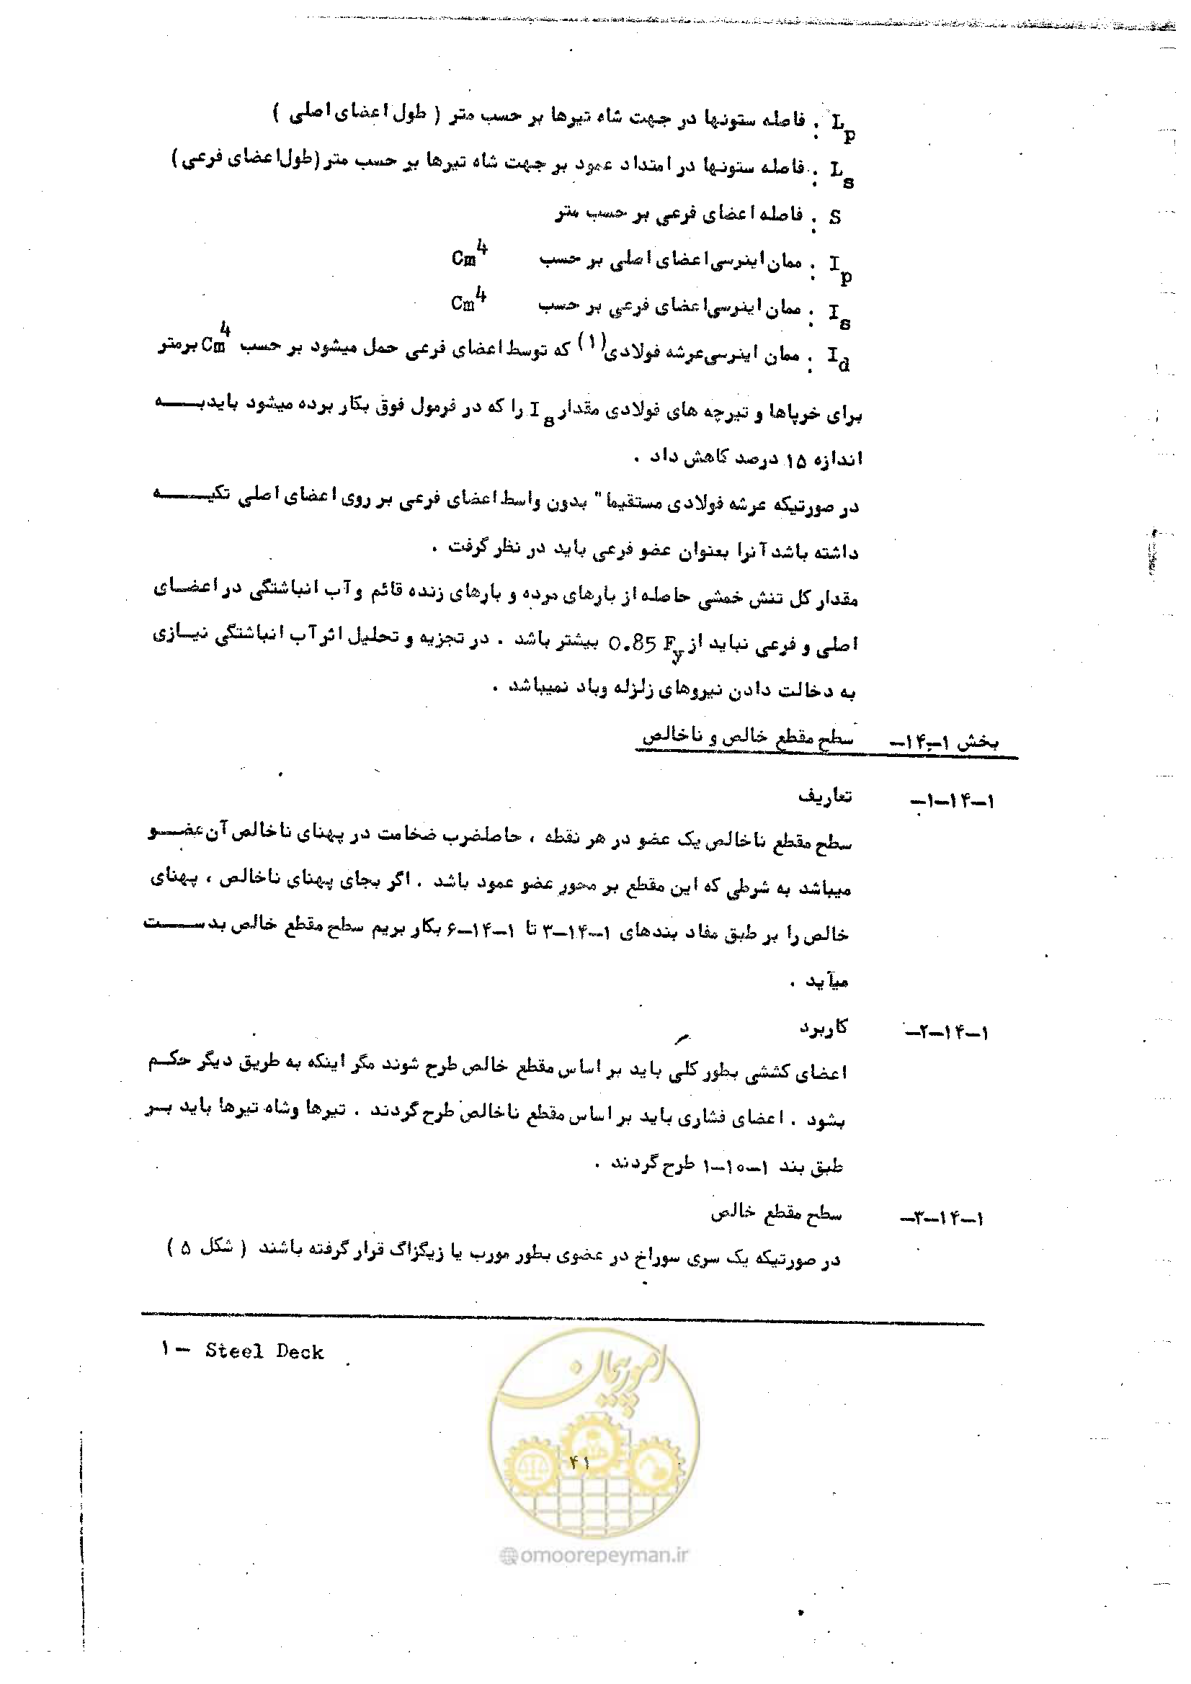 L_p : فاصله ستونها در جهت شاه تیرها بر حسب متر ( طول اعضای اصلی )
L_s : فاصله ستونها در امتداد عمود بر جهت شاه تیرها بر حسب متر (طول اعضای فرعی )
S : فاصله اعضای فرعی بر حسب متر
I_p : ممان اینرسی اعضای اصلی بر حسب Cm⁴
I_s : ممان اینرسی اعضای فرعی بر حسب Cm⁴
I_d : ممان اینرسی عرشه فولادی (۱) که توسط اعضای فرعی حمل میشود بر حسب Cm⁴ برمتر
برای خرپاها و تیرچه های فولادی مقدار I_s را که در فرمول فوق بکار برده میشود باید به
اندازه ۱۵ درصد کاهش داد .
در صورتیکه عرشه فولادی مستقیما" بدون واسط اعضای فرعی بر روی اعضای اصلی تکیه
داشته باشد آنرا بعنوان عضو فرعی باید در نظر گرفت .
مقدار کل تنش خمشی حاصله از بارهای مرده و بارهای زنده قائم و آب انباشتگی در اعضای
اصلی و فرعی نباید از 0.85 F_y بیشتر باشد . در تجزیه و تحلیل اثر آب انباشتگی نیازی
به دخالت دادن نیروهای زلزله وباد نمیباشد .
بخش ۱-۱۴- سطح مقطع خالص و ناخالص
۱-۱۴-۱- تعاریف
سطح مقطع ناخالص یک عضو در هر نقطه ، حاصلضرب ضخامت در پهنای ناخالص آن عضو
میباشد به شرطی که این مقطع بر محور عضو عمود باشد . اگر بجای پهنای ناخالص ، پهنای
خالص را بر طبق مفاد بندهای ۱-۱۴-۳ تا ۱-۱۴-۶ بکار بریم سطح مقطع خالص بدست
میآید .
۱-۱۴-۲- کاربرد
اعضای کششی بطور کلی باید بر اساس مقطع خالص طرح شوند مگر اینکه به طریق دیگر حکم
بشود . اعضای فشاری باید بر اساس مقطع ناخالص طرح گردند . تیرها وشاه تیرها باید بر
طبق بند ۱-۱۰-۱ طرح گردند .
۱-۱۴-۳- سطح مقطع خالص
در صورتیکه یک سری سوراخ در عضوی بطور مورب یا زیگزاگ قرار گرفته باشند ( شکل ۵ )
۱ - Steel Deck
امور پیمان
۴۱
@omoorepeyman.ir